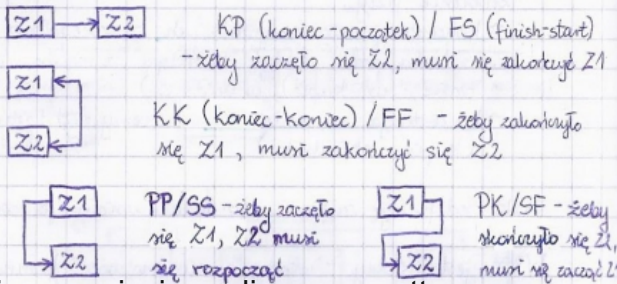 Z1 Z2 KP (koniec-początek) / FS (finish-start)
- żeby zaczęło się Z2, musi się zakończyć Z1
Z1
Z2
KK (koniec-koniec) / FF - żeby zakończyło
się Z1, musi zakończyć się Z2
Z1
Z2
PP/SS - żeby zaczęło
się Z1, Z2 musi
się rozpocząć
Z1
Z2
PK/SF - żeby
skończyło się Z2,
musi się zacząć